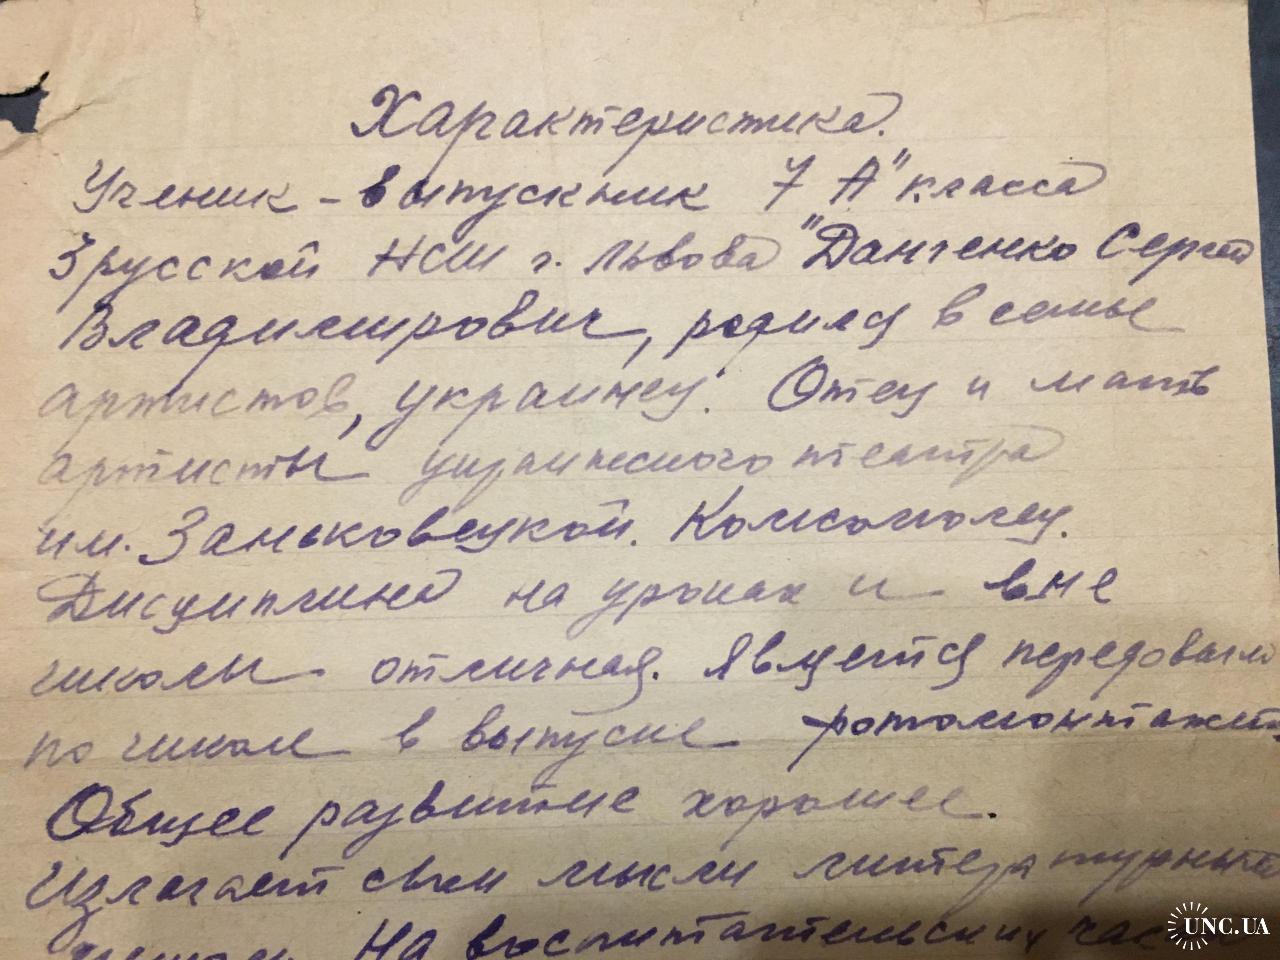 Характеристика.
Ученик - выпускник 7 "А" класса
3 русской НСШ г. Львова Данченко Сергей
Владимирович, родился в семье
артистов, украинец. Отец и мать
артисты украинского театра
им. Заньковецкой. Комсомолец.
Дисциплина на уроках и вне
школы отличная. Является передовым
по школе в выпуске фотомонтажей
Общее развитие хорошее.
Излагает свои мысли литературным
На воспитательских часах
UNC.UA